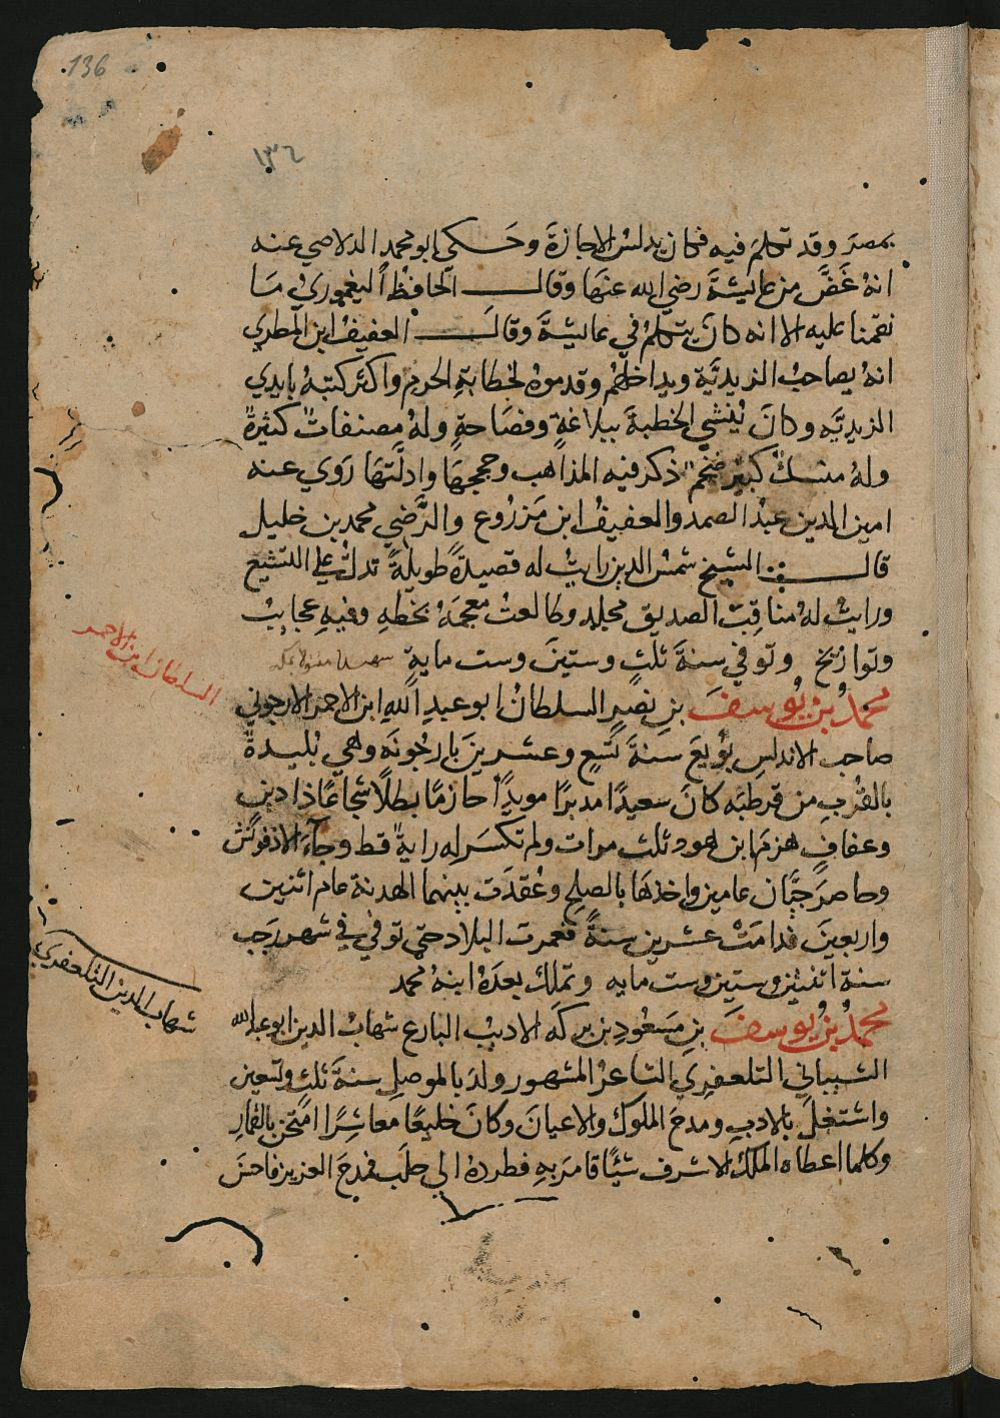 136
١٣٦
بمصرَ وقد تكلمَ فيه فكان يدلس الاجازةَ وحكي ابو محمد الدلاصي عنه
انهُ غَضَّ من عايشةَ رضي الله عنهَا وقال الحافظ اليغموريُ مَا
نقمنا عليه الا انه كانَ يتكلمُ في عايشةَ وقالَ العفيفُ ابن المطري
انهُ يصاحبُ الزيديَّة ويداخلهُم وقدموهُ لخطابةِ الحرمِ واكثر كتبهُ بايدي
الزيديَّه وكانَ يُنشي الخطبةَ ببلاغةٍ وفصَاحةٍ ولهُ مصنفاتٌ كثيرةٌ
ولهُ منسكٌ كبيرٌ ضخمٌ ذكر فيه المذاهب وحججهَا وادلَّتهَا رَوي عنه
امين الدين عبدُ الصمد والعفيفُ ابن مَزرُوع والرَّضي محمد بن خليل
قال الشيخ شمسُ الدين رايتُ له قصيدةً طويلةً تدلُّ علي التشيع
ورايتُ لهُ مناقبَ الصديق مجلد وطالعتُ معجمَهُ بخطهِ وفيهِ عجايبُ
وتواريخ وتوفي سنةَ ثلثٍ وستينَ وست مايةٍ
محمدُ بنُ يُوسفَ بنِ نصرٍ السلطانُ ابو عبدِ اللهِ ابن الاحمر الارجوني
صاحب الاندلسِ بُويعَ سنةَ تسعٍ وعشرينَ بارجُونَه وهي بُليدةٌ
بالقُربِ من قرطبَه كانَ سعيدًا مدبرًا مويدًا حازمًا بطلًا شجاعًا ذا دينٍ
وعفافٍ هزمَ ابن هود ثلث مرات ولم تكسَر له رايةٌ قط وجآءَ الاذفونش
وحاصرَ جيَّان عامين واخذهَا بالصلحِ وعُقدَت بينهما الهدنة عام اثنين
واربعينَ فدامَتْ عشرين سنةً فعمرت البلاد حتي توفي في شهر رَجب
سنة اثنتين وستين وست مايه وتملك بعدَهُ ابنهُ محمد
محمدُ بنُ يُوسفَ بنِ مَسعُودِ بن بركَه الاديبُ البارع شهابُ الدين ابو عبد الله
الشيباني التلعفرِي الشاعرُ المشهور ولدَ بالموصلِ سنةَ ثلثٍ وتسعين
واشتغلَ بالادبِ ومدحَ الملوكَ والاعيانَ وكانَ خليعًا معاشِرًا امتُحن بالقمارِ
وكلما اعطاه الملكُ الاشرف شيًّا قامرَ بهِ فطردهُ الي حلَب فمدحَ العزيز فاحسَن
السلطان ابن الاحمر
شهاب الدين التلعفري